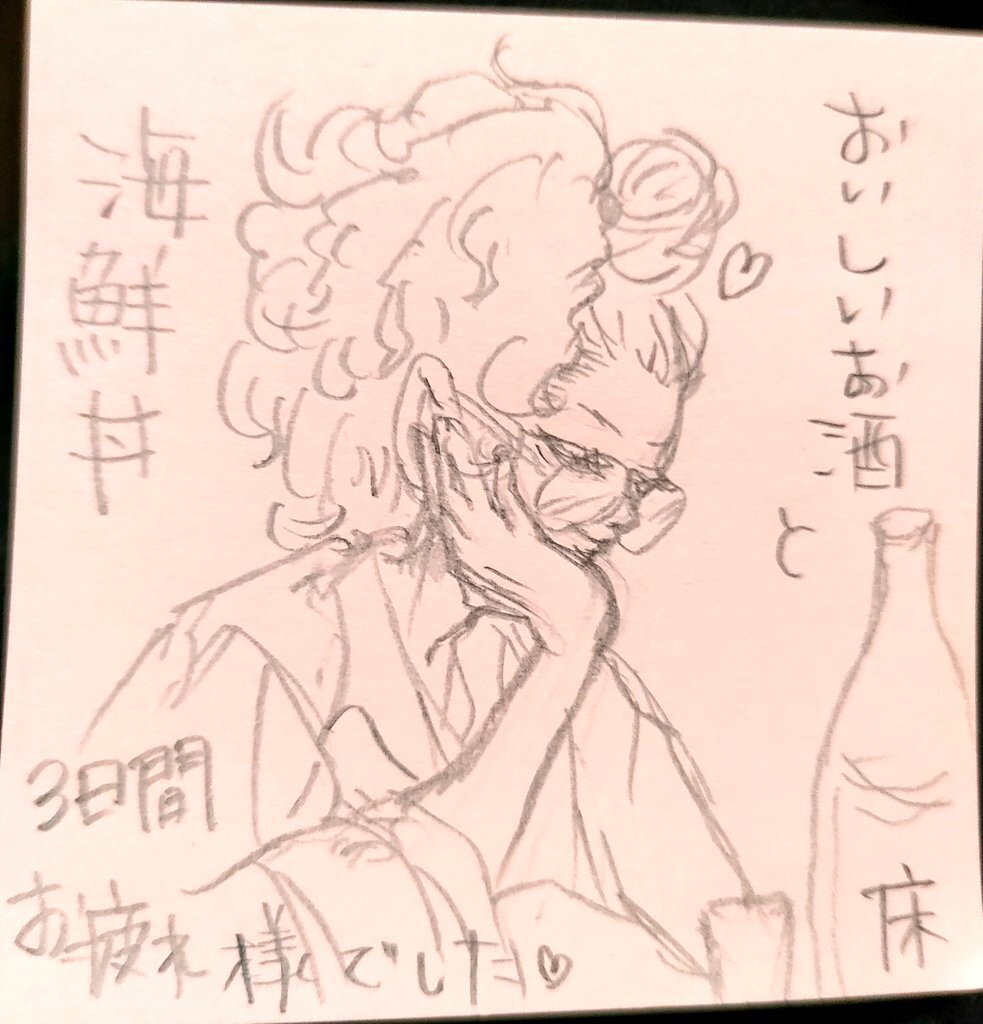 おいしいお酒
と
海鮮丼
3日間
お疲れ様でした♡
床